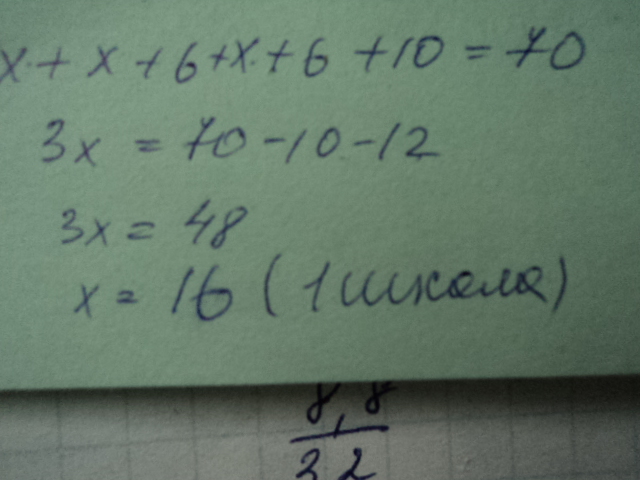 x + x + 6 + x + 6 + 10 = 70
3x = 70 - 10 - 12
3x = 48
x = 16 (1 шкала)
8,8
32